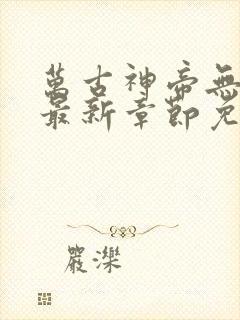 萬古神帝無
最新章節免
嚴濼